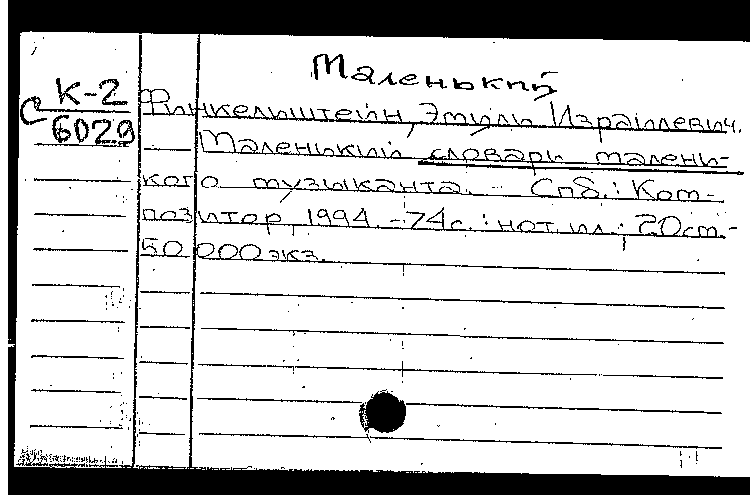 Маленький
С К-2
6029
Финкельштейн, Эмиль Израилевич.
Маленький словарь малень-
кого музыканта. - Спб.: Ком-
позитор, 1994. - 74с.: нот. ил.; 20см. -
50 000 экз.